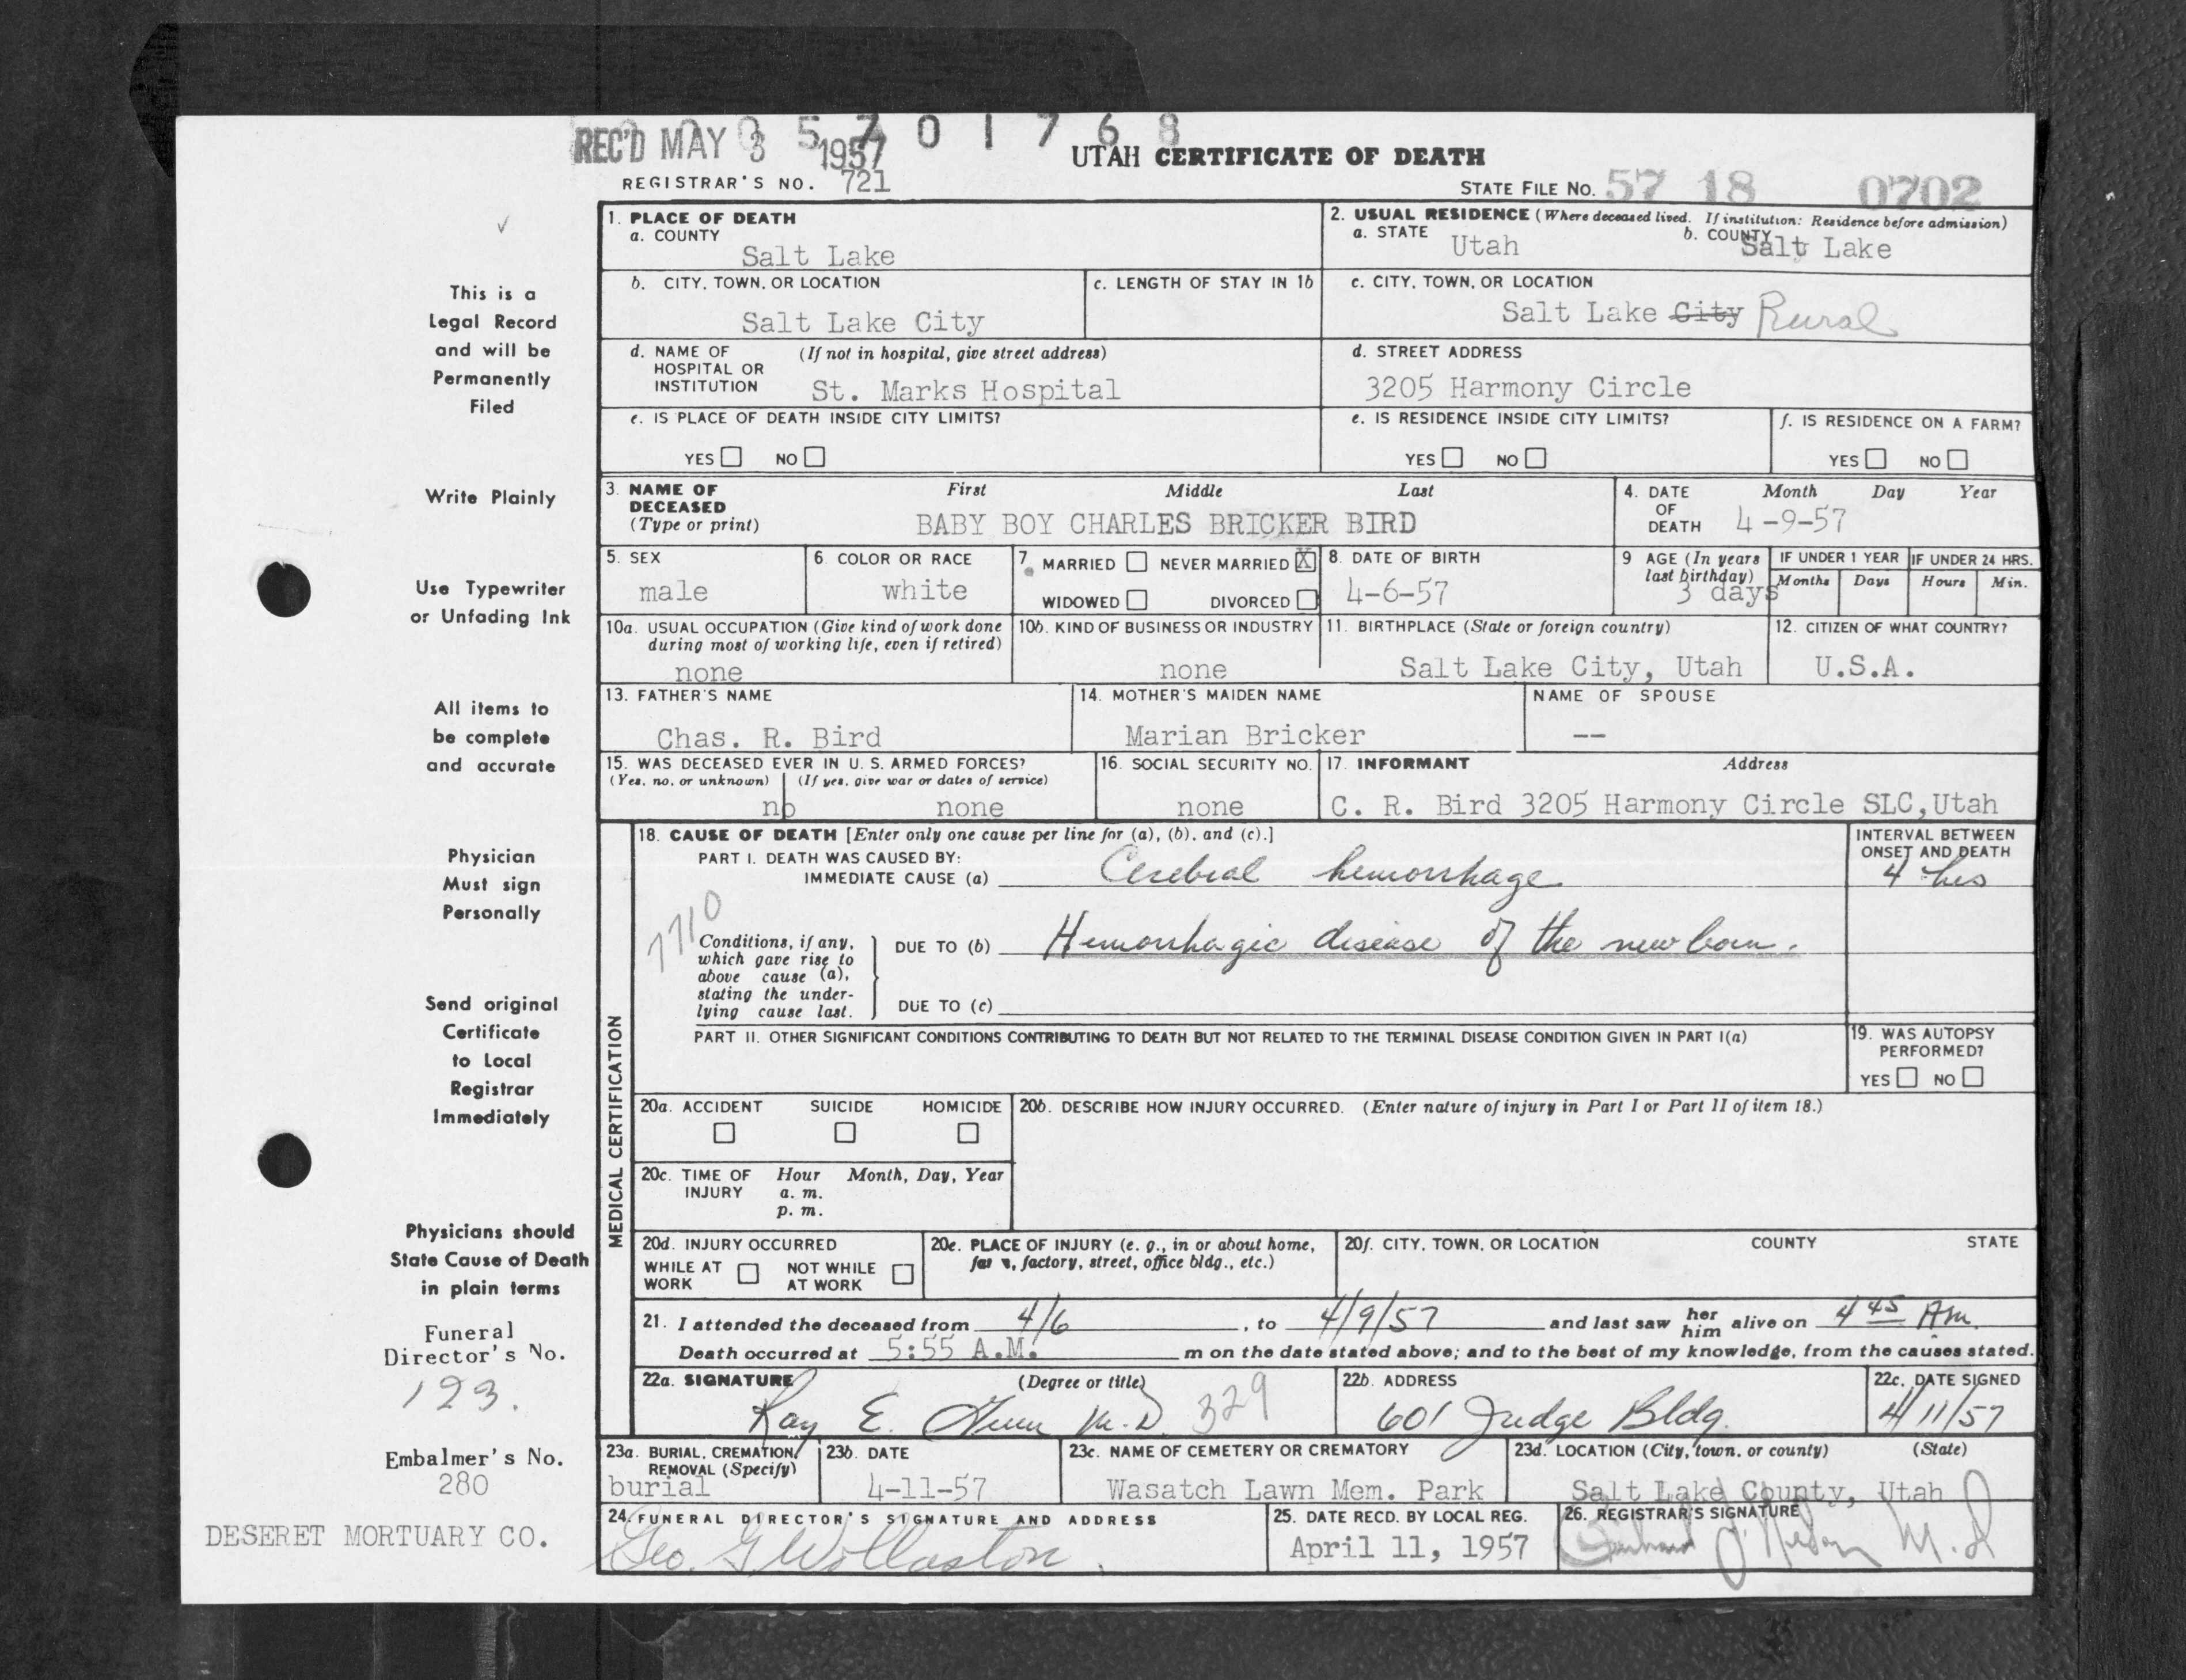 REC'D MAY 3 1957
5 7 0 1 7 6 8
UTAH CERTIFICATE OF DEATH
REGISTRAR'S NO. 721
STATE FILE NO. 57 18 0702
This is a
Legal Record
and will be
Permanently
Filed
Write Plainly
Use Typewriter
or Unfading Ink
All items to
be complete
and accurate
Physician
Must sign
Personally
Send original
Certificate
to Local
Registrar
Immediately
Physicians should
State Cause of Death
in plain terms
Funeral
Director's No.
123.
Embalmer's No.
280
DESERET MORTUARY CO.
1. PLACE OF DEATH
a. COUNTY
Salt Lake
2. USUAL RESIDENCE (Where deceased lived. If institution: Residence before admission)
a. STATE Utah b. COUNTY Salt Lake
b. CITY, TOWN, OR LOCATION
Salt Lake City
c. LENGTH OF STAY IN 1b
c. CITY, TOWN, OR LOCATION
Salt Lake City Rural
d. NAME OF (If not in hospital, give street address)
HOSPITAL OR
INSTITUTION St. Marks Hospital
d. STREET ADDRESS
3205 Harmony Circle
e. IS PLACE OF DEATH INSIDE CITY LIMITS?
YES NO
e. IS RESIDENCE INSIDE CITY LIMITS?
YES NO
f. IS RESIDENCE ON A FARM?
YES NO
3. NAME OF First Middle Last
DECEASED
(Type or print) BABY BOY CHARLES BRICKER BIRD
4. DATE Month Day Year
OF
DEATH 4-9-57
5. SEX
male
6. COLOR OR RACE
white
7. MARRIED NEVER MARRIED X
WIDOWED DIVORCED
8. DATE OF BIRTH
4-6-57
9 AGE (In years
last birthday)
3 days
IF UNDER 1 YEAR
Months Days
IF UNDER 24 HRS.
Hours Min.
10a. USUAL OCCUPATION (Give kind of work done
during most of working life, even if retired)
none
10b. KIND OF BUSINESS OR INDUSTRY
none
11. BIRTHPLACE (State or foreign country)
Salt Lake City, Utah
12. CITIZEN OF WHAT COUNTRY?
U.S.A.
13. FATHER'S NAME
Chas. R. Bird
14. MOTHER'S MAIDEN NAME
Marian Bricker
NAME OF SPOUSE
--
15. WAS DECEASED EVER IN U. S. ARMED FORCES?
(Yes, no, or unknown) (If yes, give war or dates of service)
no none
16. SOCIAL SECURITY NO.
none
17. INFORMANT Address
C. R. Bird 3205 Harmony Circle SLC,Utah
MEDICAL CERTIFICATION
18. CAUSE OF DEATH [Enter only one cause per line for (a), (b), and (c).]
PART I. DEATH WAS CAUSED BY:
IMMEDIATE CAUSE (a) Cerebral hemorrhage
INTERVAL BETWEEN
ONSET AND DEATH
4 hrs
7710
Conditions, if any,
which gave rise to
above cause (a),
stating the under-
lying cause last.
DUE TO (b) Hemorrhagic disease of the new born.
DUE TO (c)
PART II. OTHER SIGNIFICANT CONDITIONS CONTRIBUTING TO DEATH BUT NOT RELATED TO THE TERMINAL DISEASE CONDITION GIVEN IN PART I(a)
19. WAS AUTOPSY
PERFORMED?
YES NO
20a. ACCIDENT SUICIDE HOMICIDE
20b. DESCRIBE HOW INJURY OCCURRED. (Enter nature of injury in Part I or Part II of item 18.)
20c. TIME OF Hour Month, Day, Year
INJURY a. m.
p. m.
20d. INJURY OCCURRED
WHILE AT NOT WHILE
WORK AT WORK
20e. PLACE OF INJURY (e. g., in or about home,
farm, factory, street, office bldg., etc.)
20f. CITY, TOWN, OR LOCATION COUNTY STATE
21. I attended the deceased from 4/6, to 4/9/57 and last saw her him alive on 4 45 Am.
Death occurred at 5:55 A.M. m on the date stated above; and to the best of my knowledge, from the causes stated.
22a. SIGNATURE (Degree or title)
Ray E. M.D. 329
22b. ADDRESS
601 Judge Bldg.
22c. DATE SIGNED
4/11/57
23a. BURIAL, CREMATION,
REMOVAL (Specify)
burial
23b. DATE
4-11-57
23c. NAME OF CEMETERY OR CREMATORY
Wasatch Lawn Mem. Park
23d. LOCATION (City, town, or county) (State)
Salt Lake County, Utah
24. FUNERAL DIRECTOR'S SIGNATURE AND ADDRESS
Geo. G Wollaston
25. DATE RECD. BY LOCAL REG.
April 11, 1957
26. REGISTRAR'S SIGNATURE
M.D